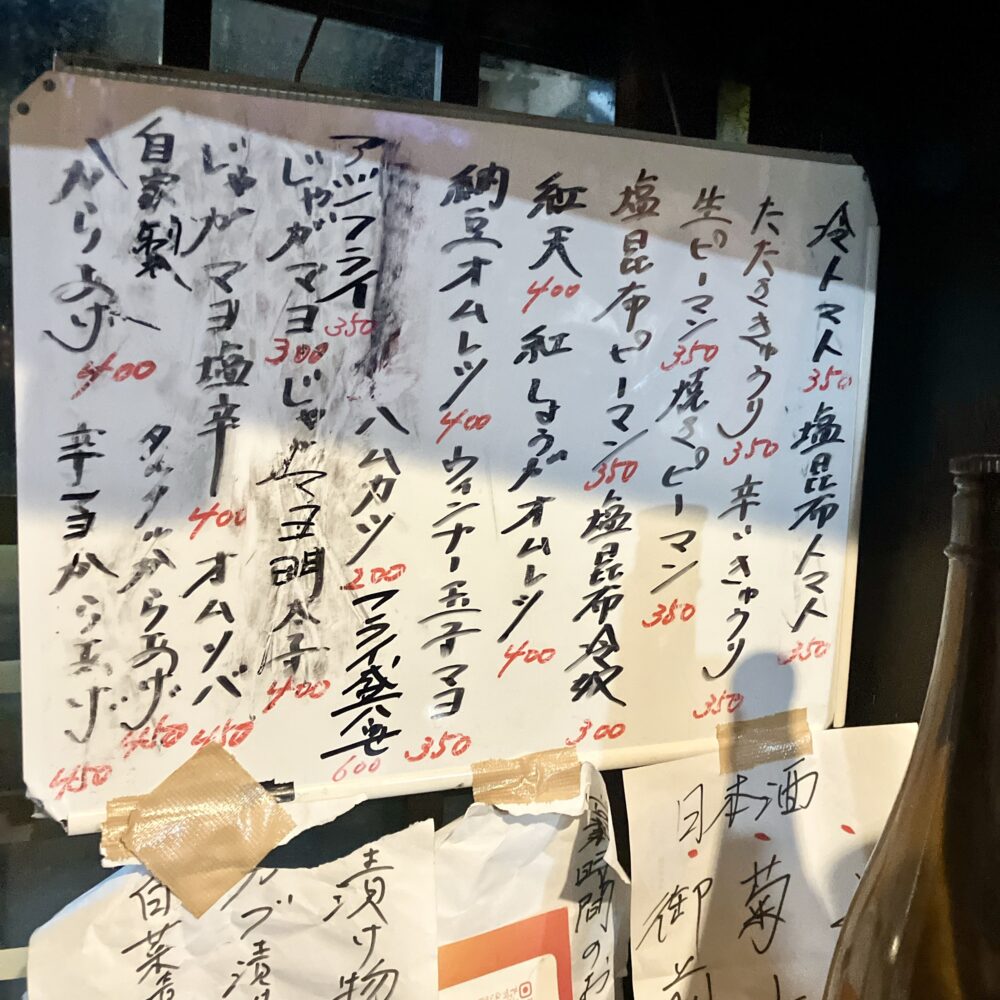 冷トマト 350 塩昆布トマト 350
たたききゅうり 350 辛いきゅうり 350
生ピーマン 350 焼きピーマン 350
塩昆布ピーマン 350 塩昆布冷奴 300
紅天 400 紅しょうがオムレツ 400
納豆オムレツ 400 ウィンナー玉子マヨ 350
アジフライ 350 ハムカツ 200 フライ盛合せ 600
じゃがマヨ 300 じゃがマヨ明太子 400
じゃがマヨ塩辛 400 オムソバ 450
自家製
からあげ 400
タルタルからあげ 450
辛マヨからあげ 450
漬け物
カブ漬
白菜
業時間のお
日本酒
・菊
・御前